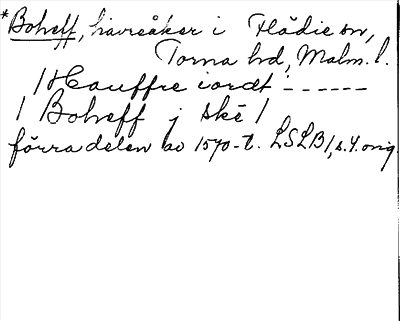 *Bohreff, havreåker i Flädie sn,
Torna hd, Malm. l.
/ Hauffre iordt: ------
/ Bohreff j skē /
förra delen av 1570-t. LSLB 1, s. 4. orig.